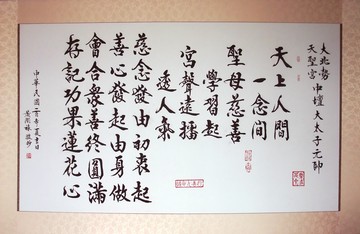 大北勢
天聖宮 中壇大太子元帥
天上人間
一念間
聖母慈善
學習起
宮聲遠播
逹人氣
慈念發由初衷起
善心發起由身做
會合眾善終圓滿
存記功果蓮花心
中華民國一百年